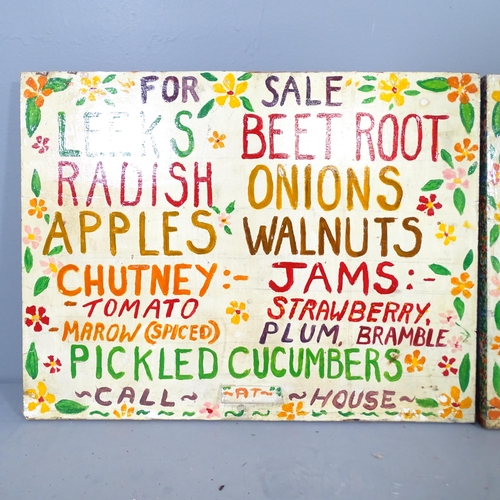 FOR SALE
LEEKS BEET ROOT
RADISH ONIONS
APPLES WALNUTS
CHUTNEY:- JAMS:-
-TOMATO STRAWBERRY,
-MAROW (SPICED) PLUM, BRAMBLE
PICKLED CUCUMBERS
~CALL~ ~AT~ ~HOUSE~